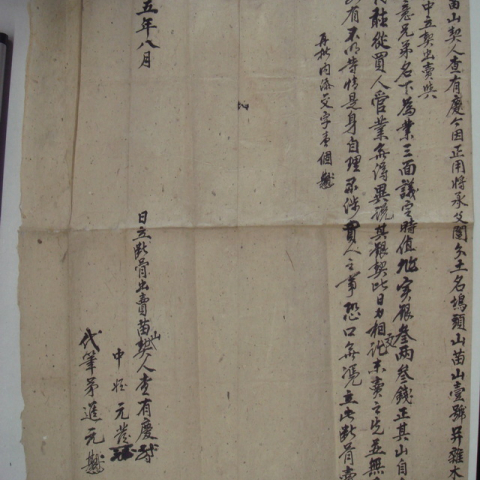 苗山契人查有慶今因正用將承父鬮分土名塢頭山苗山壹號并雜木
中立契出賣與
意兄弟名下為業三面議定時值
實銀叁兩叁錢正其山自
從買人管業無得異說其銀契此日
相訖未賣之先並無
有不明等情是身自理不涉買人之事恐口無憑立此斷骨賣
再批內添
字
個
五年八月
日立斷骨出賣苗山契人查有慶
中
元
代筆弟進元